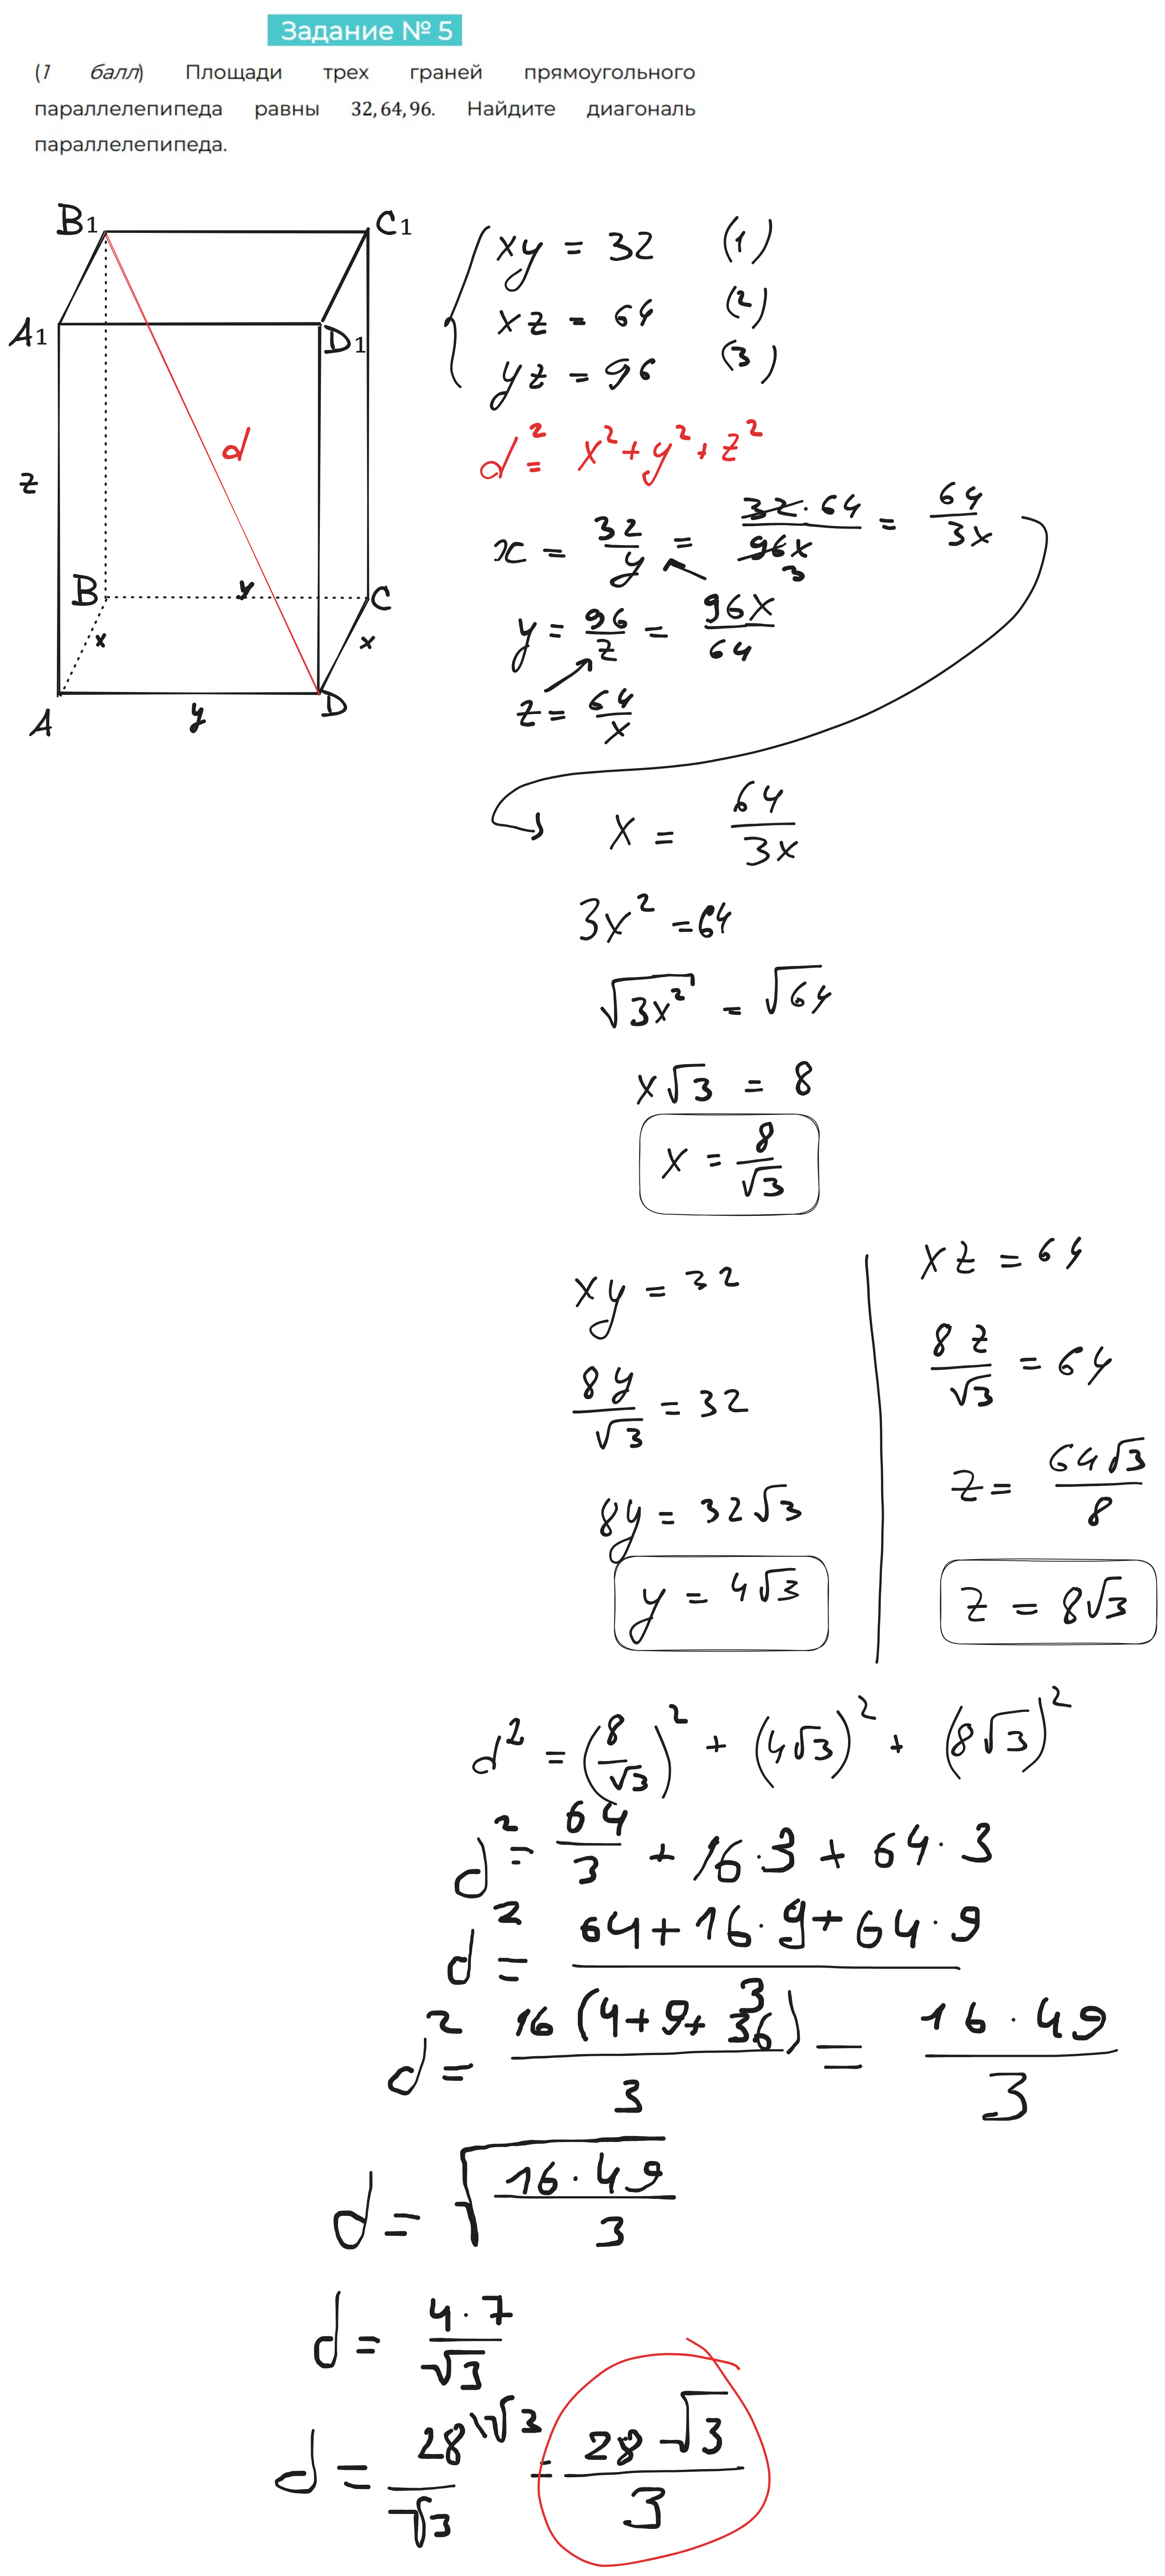 Задание № 5
(1 балл) Площади трех граней прямоугольного
параллелепипеда равны 32, 64, 96. Найдите диагональ
параллелепипеда.
B1 C1
A1 D1
d
z
B y C
x x
A y D
xy = 32 (1)
xz = 64 (2)
yz = 96 (3)
d² = x² + y² + z²
x = 32/y = 32·64/96x 3 = 64/3x
y = 96/z = 96x/64
z = 64/x
x = 64/3x
3x² = 64
√3x² = √64
x√3 = 8
x = 8/√3
xy = 32
8y/√3 = 32
8y = 32√3
y = 4√3
xz = 64
8z/√3 = 64
z = 64√3/8
z = 8√3
d² = (8/√3)² + (4√3)² + (8√3)²
d² = 64/3 + 16·3 + 64·3
d² = 64+16·9+64·9/3
d² = 16(4+9+36)/3 = 16·49/3
d = √16·49/3
d = 4·7/√3
d = 28\√3/√3 = 28√3/3